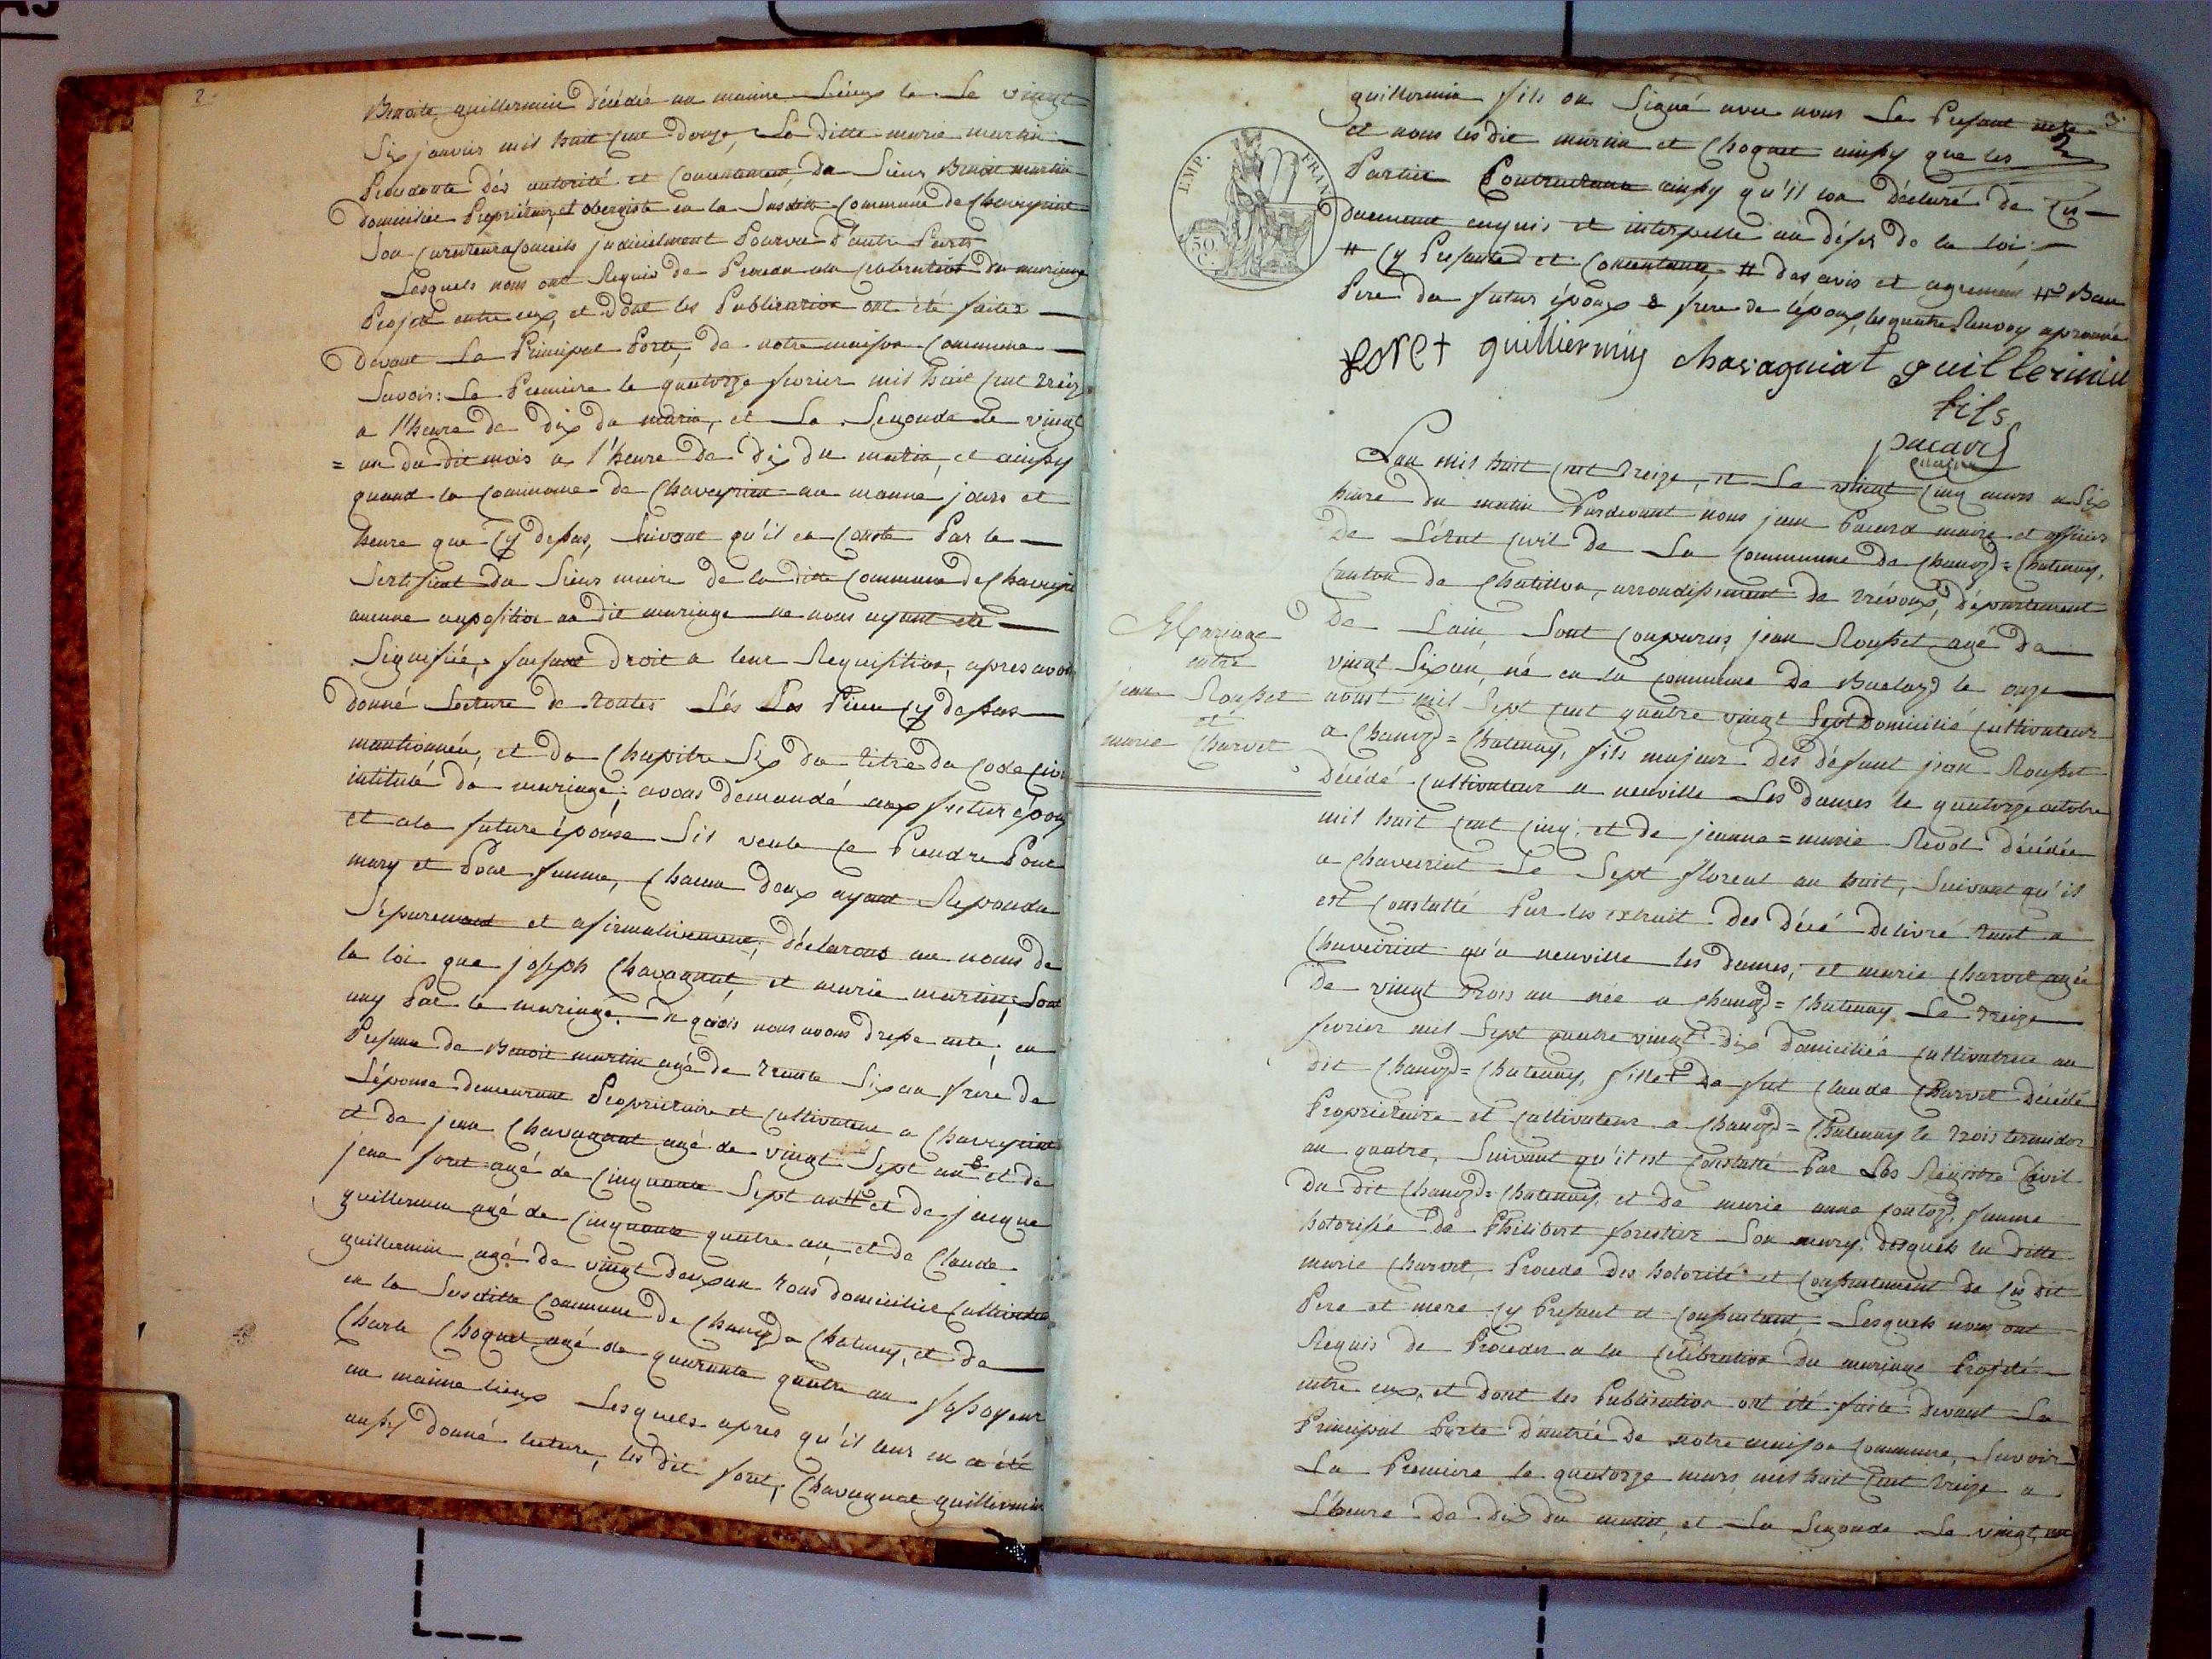 2.
Benoite guillermin décédée au maime Lieux le Le vingt
Six janvier mil huit cent douze, La ditte marie martin
Procedante dés autorité et Consentement du Sieur Benoit martin
domiciliée Propriétaire et obergiste en la Susditte Commune de Chaveyriat
Son Curateur a Conseils judicielment Pourvu d'autre Parts
Lesquels nous ont Requis de Proceder a la Celebration du mariage
Projeté entre eux, et dont les Publication ont été faites
devant La Principal Porte, de notre maison Commune
Savoir: La Premiere le quatorze fevrier mil huit cent treize
a l'heure de dix du matin, et La Segonde le vingt
= un du dit mois a l'heure de dix du matin, et ainsy
quand la Commune de Chaveyriat au maime jours et
heure que Cy dessus, Suivant qu'il en Conste Par le
Sertificat du Sieur maire de la ditte Commune de Chaveyria
aucune opposition au dit mariage ne nous ayant été
Signifiée, faisant droit a leur Requisition, apres avoir
donné Lecture de toutes Lés Les Piece Cy dessus
mantionnée, et du Chapitre Six du titre du Code Civil
intitulé du mariage; avons demandé aux futur époux
et a la future épouse S'il veule se Prendre Pour
mary et Pour femme, Chacun deux ayant Repondu
Séparement et afirmativement; déclarons au noms de
la loi que joseph Chavagnat, et marie martin; Sont
uny Par le mariage. de quois nous avons dressé acte, en
Presence de Benoit martin agé de trente Six an frere de
L'épouse demeurant Proprietaire et Cultivateur a Chaveyriat
et de jean Chavagnat agé de vingt Sept an & et de
jean foret agé de Cinquante Sept an # et de jacque
guillermin agé de Cinquante quatre an, et de Claude
guillermin agé de vingt deux an tous domiciliée Cultivateur
en la Susditte Commune de Chanoz = Chatenay, et de
Charle Choquet agé de quarante quatre an fossoyeur
au maime lieux Lesquels apres qu'il leur en a été
aussy donné lecture, les dit foret, Chavagnat guillermin
3.
guillermin fils on Signé avec nous Le Present acte
et nous les dit martin et Choquet ainsy que les
Partie Contractant ainsy qu'il lon déclaré de Ces
duement enquis et interpellé au désir de la loi;
# Cy Presante et Consentante, # des avis et agrement #
Pere du futur époux & frere de l'époux, les quatre Renvoy aprouvée
EMP. FRAN.
50 C.
foret guilliermin chavagniat guillermin
fils
pacard
maire
Lan mil huit cent treize, et Le vingt Cinq mars a Six
heure du matin Pardevant nous jean Pacard maire et officier
De L'état Civil de La Commune de Chanoz = Chatenay,
Canton de Chatillon, arrondissement de trévoux, département
De Lain, Sont Comparus, jean Rousset agé de
vingt Six an, né en la Commune de Buelaz le onze
aoust mil Sept cent quatre vingt Sept Domicilié Cultivateur
a Chanoz = Chatenay, fils majeur des défunt jean Rousset
Décédé Cultivateur a neuville Les Dames le quatorze octobre
mil huit cent Cinq et de jeanne = marie Revol décédée
a Chaveiriat Le Sept floreal an huit, Suivant qu'il
est Constatté Par les extrait des décé delivré tant a
Chaveiriat qu'a neuville les dames; et marie Charvet agée
De vingt trois an née a Chanoz = Chatenay Le treize
fevrier mil Sept quatre vingt dix domiciliée Cultivatrice au
dit Chanoz = Chatenay, fille + De fut Claude Charvet Décédé
Proprietaire et Cultivateur a Chanoz = Chatenay le trois termidor
an quatre, Suivant qu'il est Constatté Par Les Registre Civil
Du dit Chanoz = Chatenay, et de marie anne, femme
hotorisée de Philibert forestier Son mary, desquels la ditte
marie Charvet, Procede des hotorité et Consentement de Ces dit
Pere et mere Cy Present et Consentant, Lesquels nous ont
Requis de Proceder a la Célébration du mariage Projeté
entre eux, et dont les Publication ont été faite devant La
Principal Porte d'entrée de notre maison Commune, Savoir
La Premiere le quatorze mars mil huit cent treize a
L'heure de dix du matin, et La Segonde Le vingt un
Mariage
entre
jean Rousset
et
marie Charvet